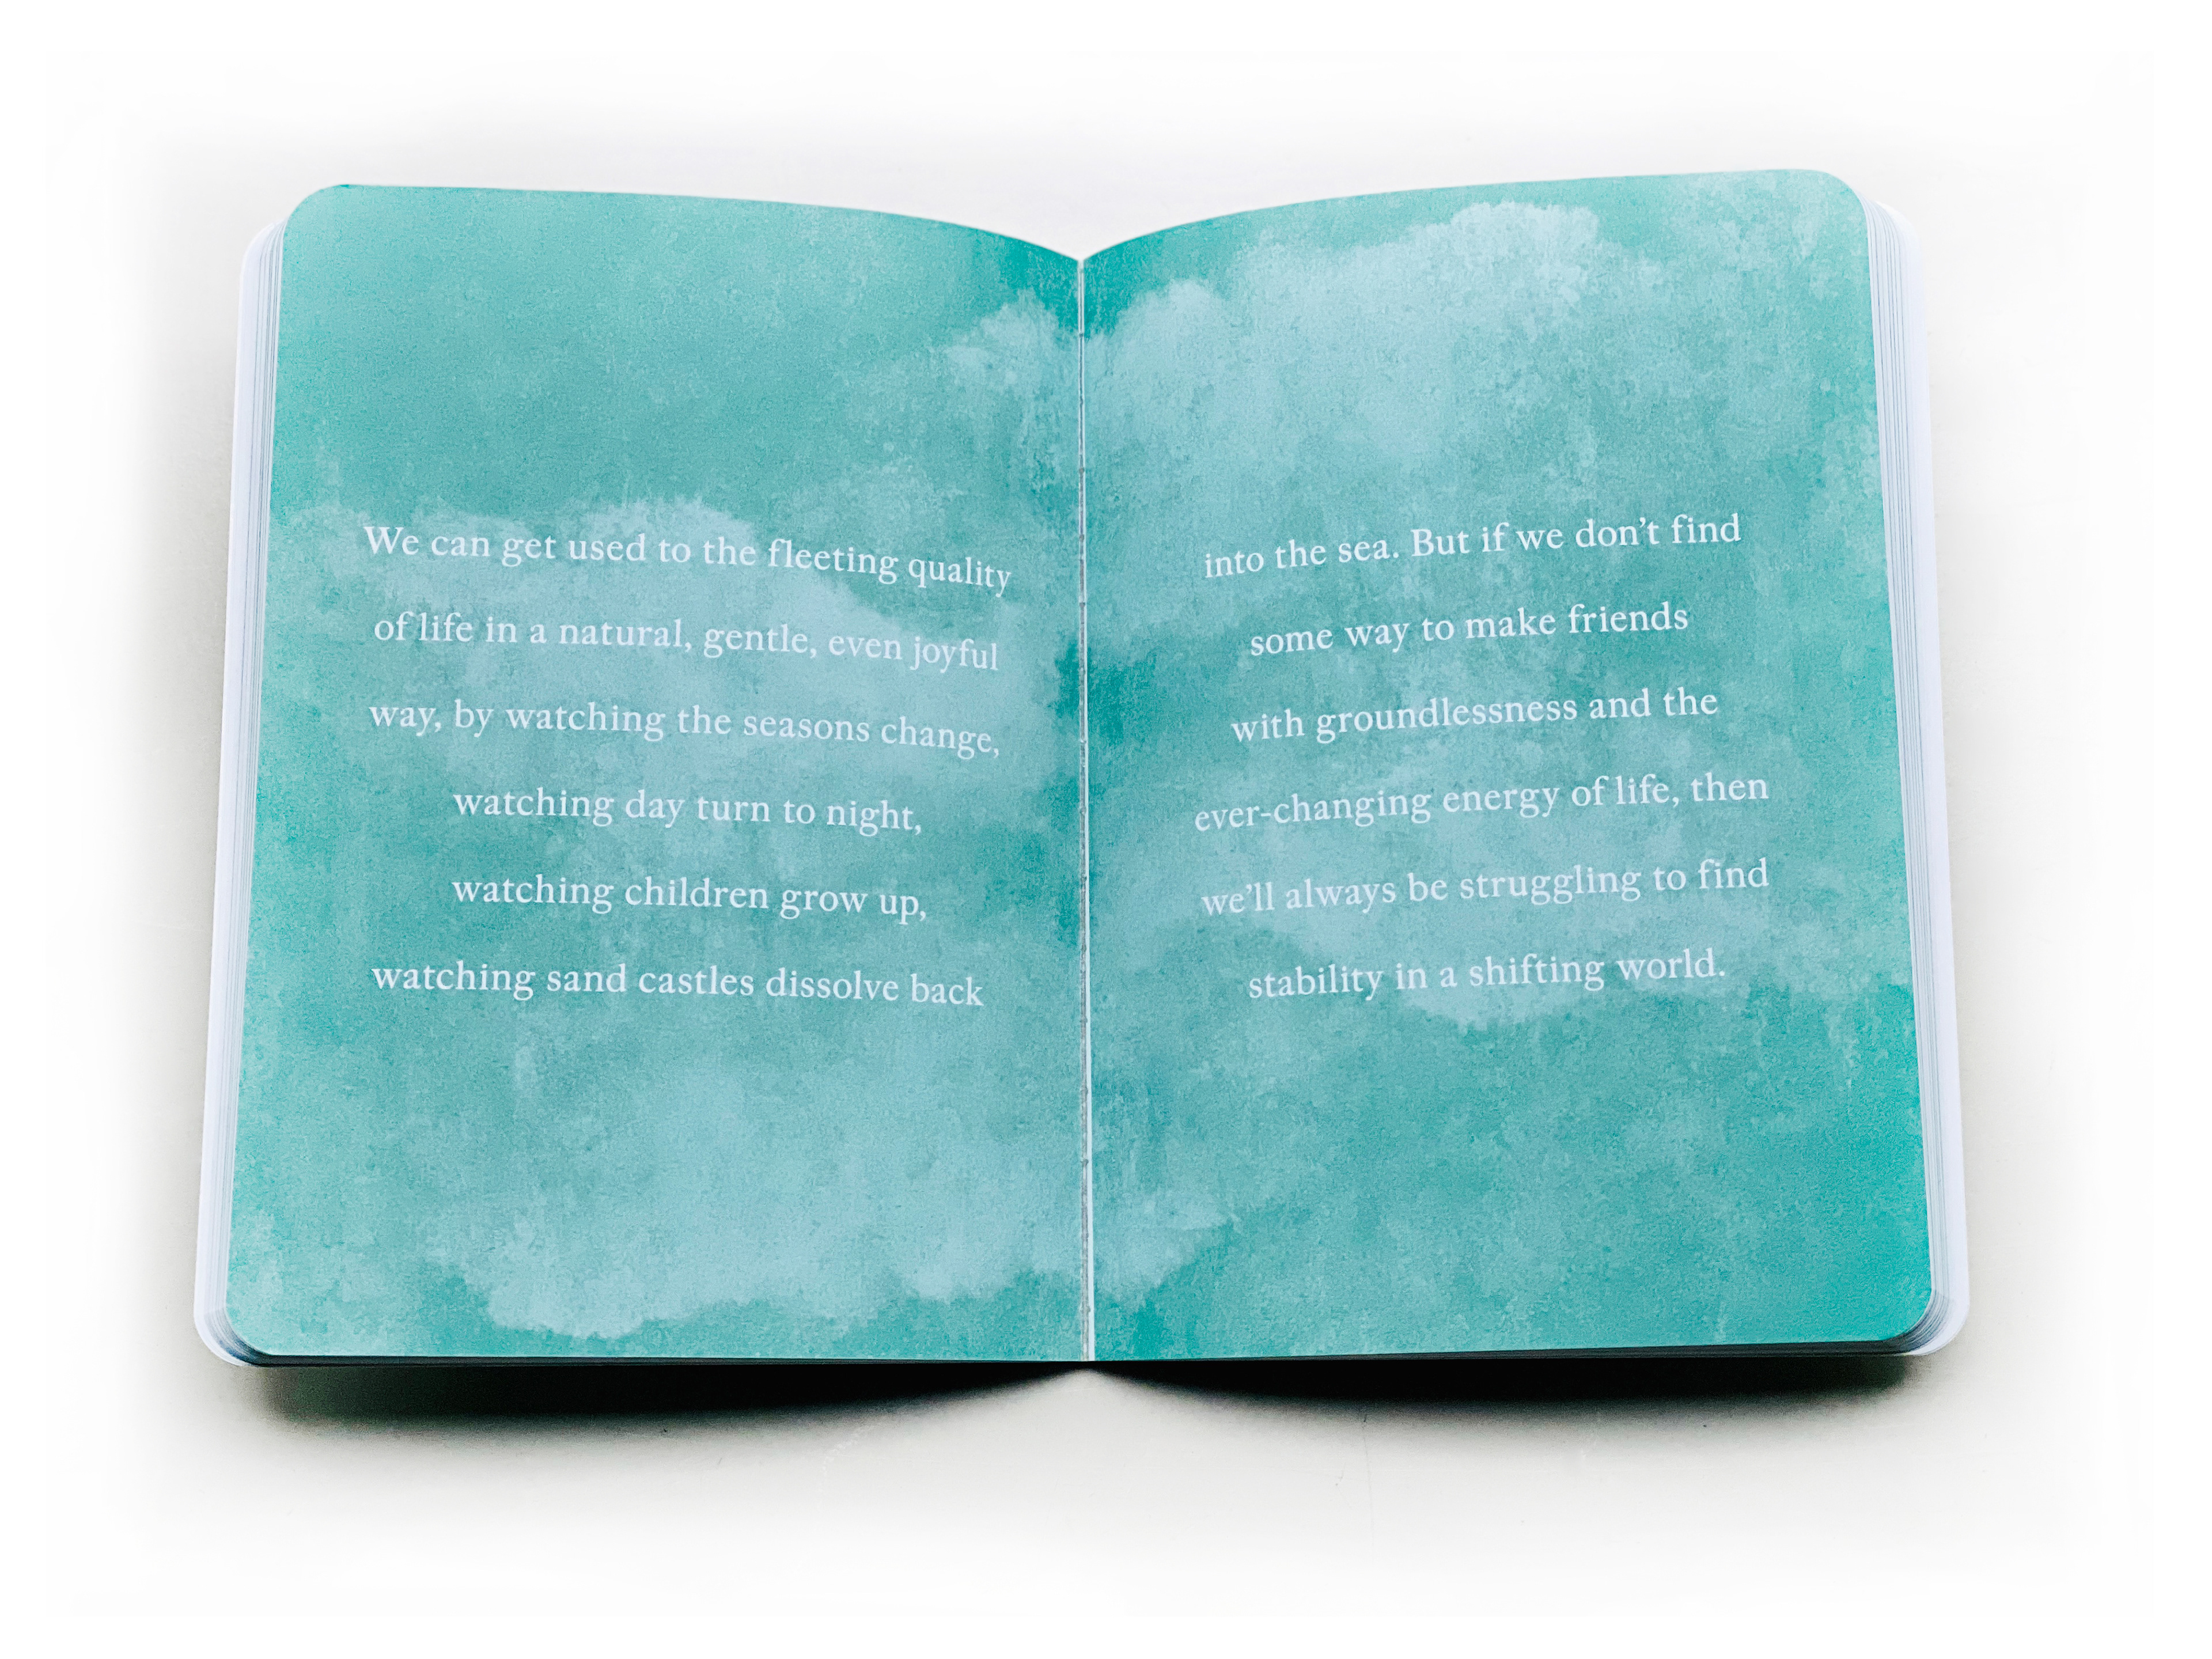 We can get used to the fleeting quality
of life in a natural, gentle, even joyful
way, by watching the seasons change,
watching day turn to night,
watching children grow up,
watching sand castles dissolve back
into the sea. But if we don’t find
some way to make friends
with groundlessness and the
ever-changing energy of life, then
we’ll always be struggling to find
stability in a shifting world.